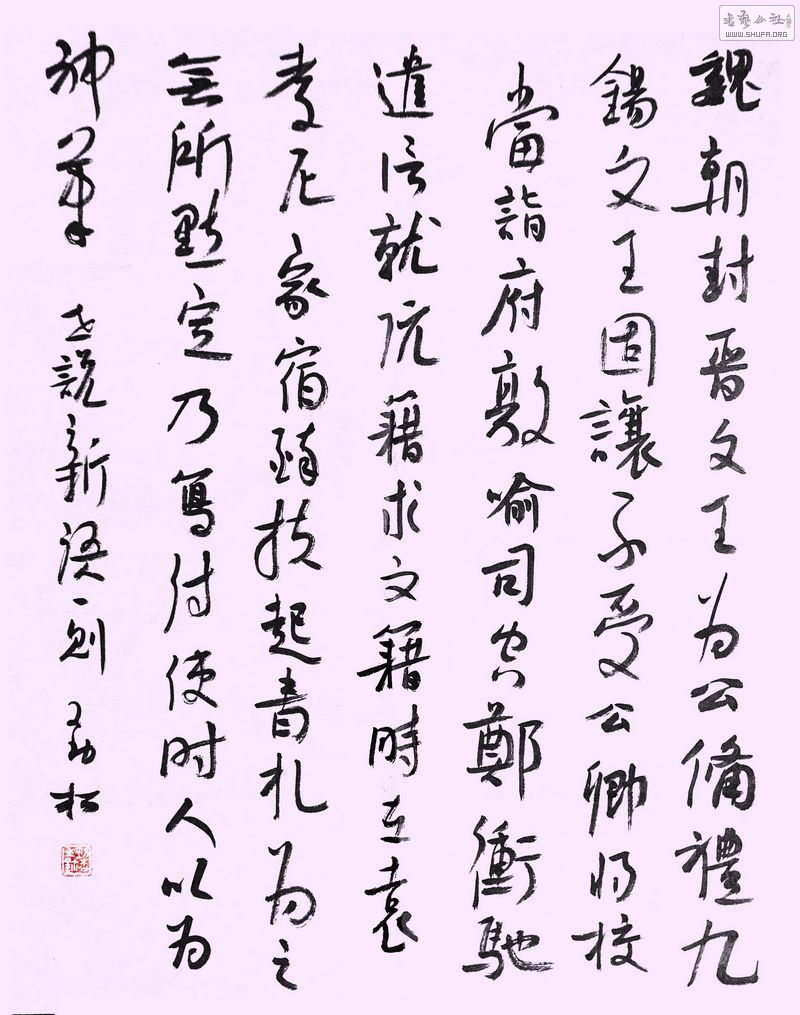 魏朝封晉文王为公備禮九
錫文王固讓不受公卿将校
當詣府敦喻司空鄭衝馳
遣信就阮籍求文籍時在袁
孝尼家宿醉扶起書札为之
無所點定乃寫付使时人以为
神筆 世說新語一則 劲松
書藝公社
WWW.SHUFA.ORG